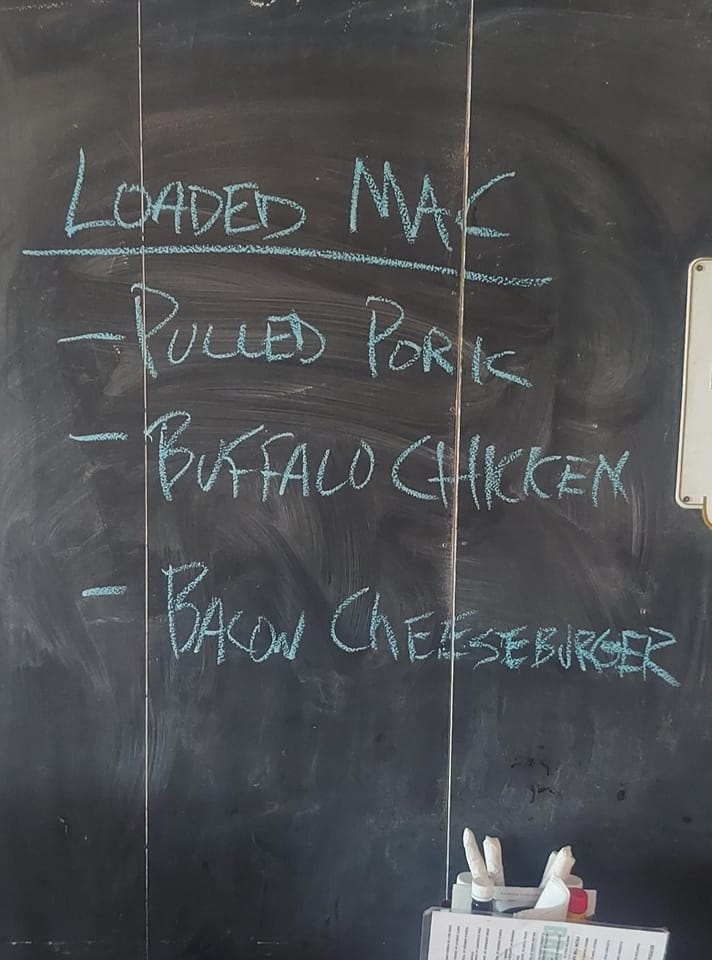 LOADED MAC
- PULLED PORK
- BUFFALO CHICKEN
- BACON CHEESEBURGER